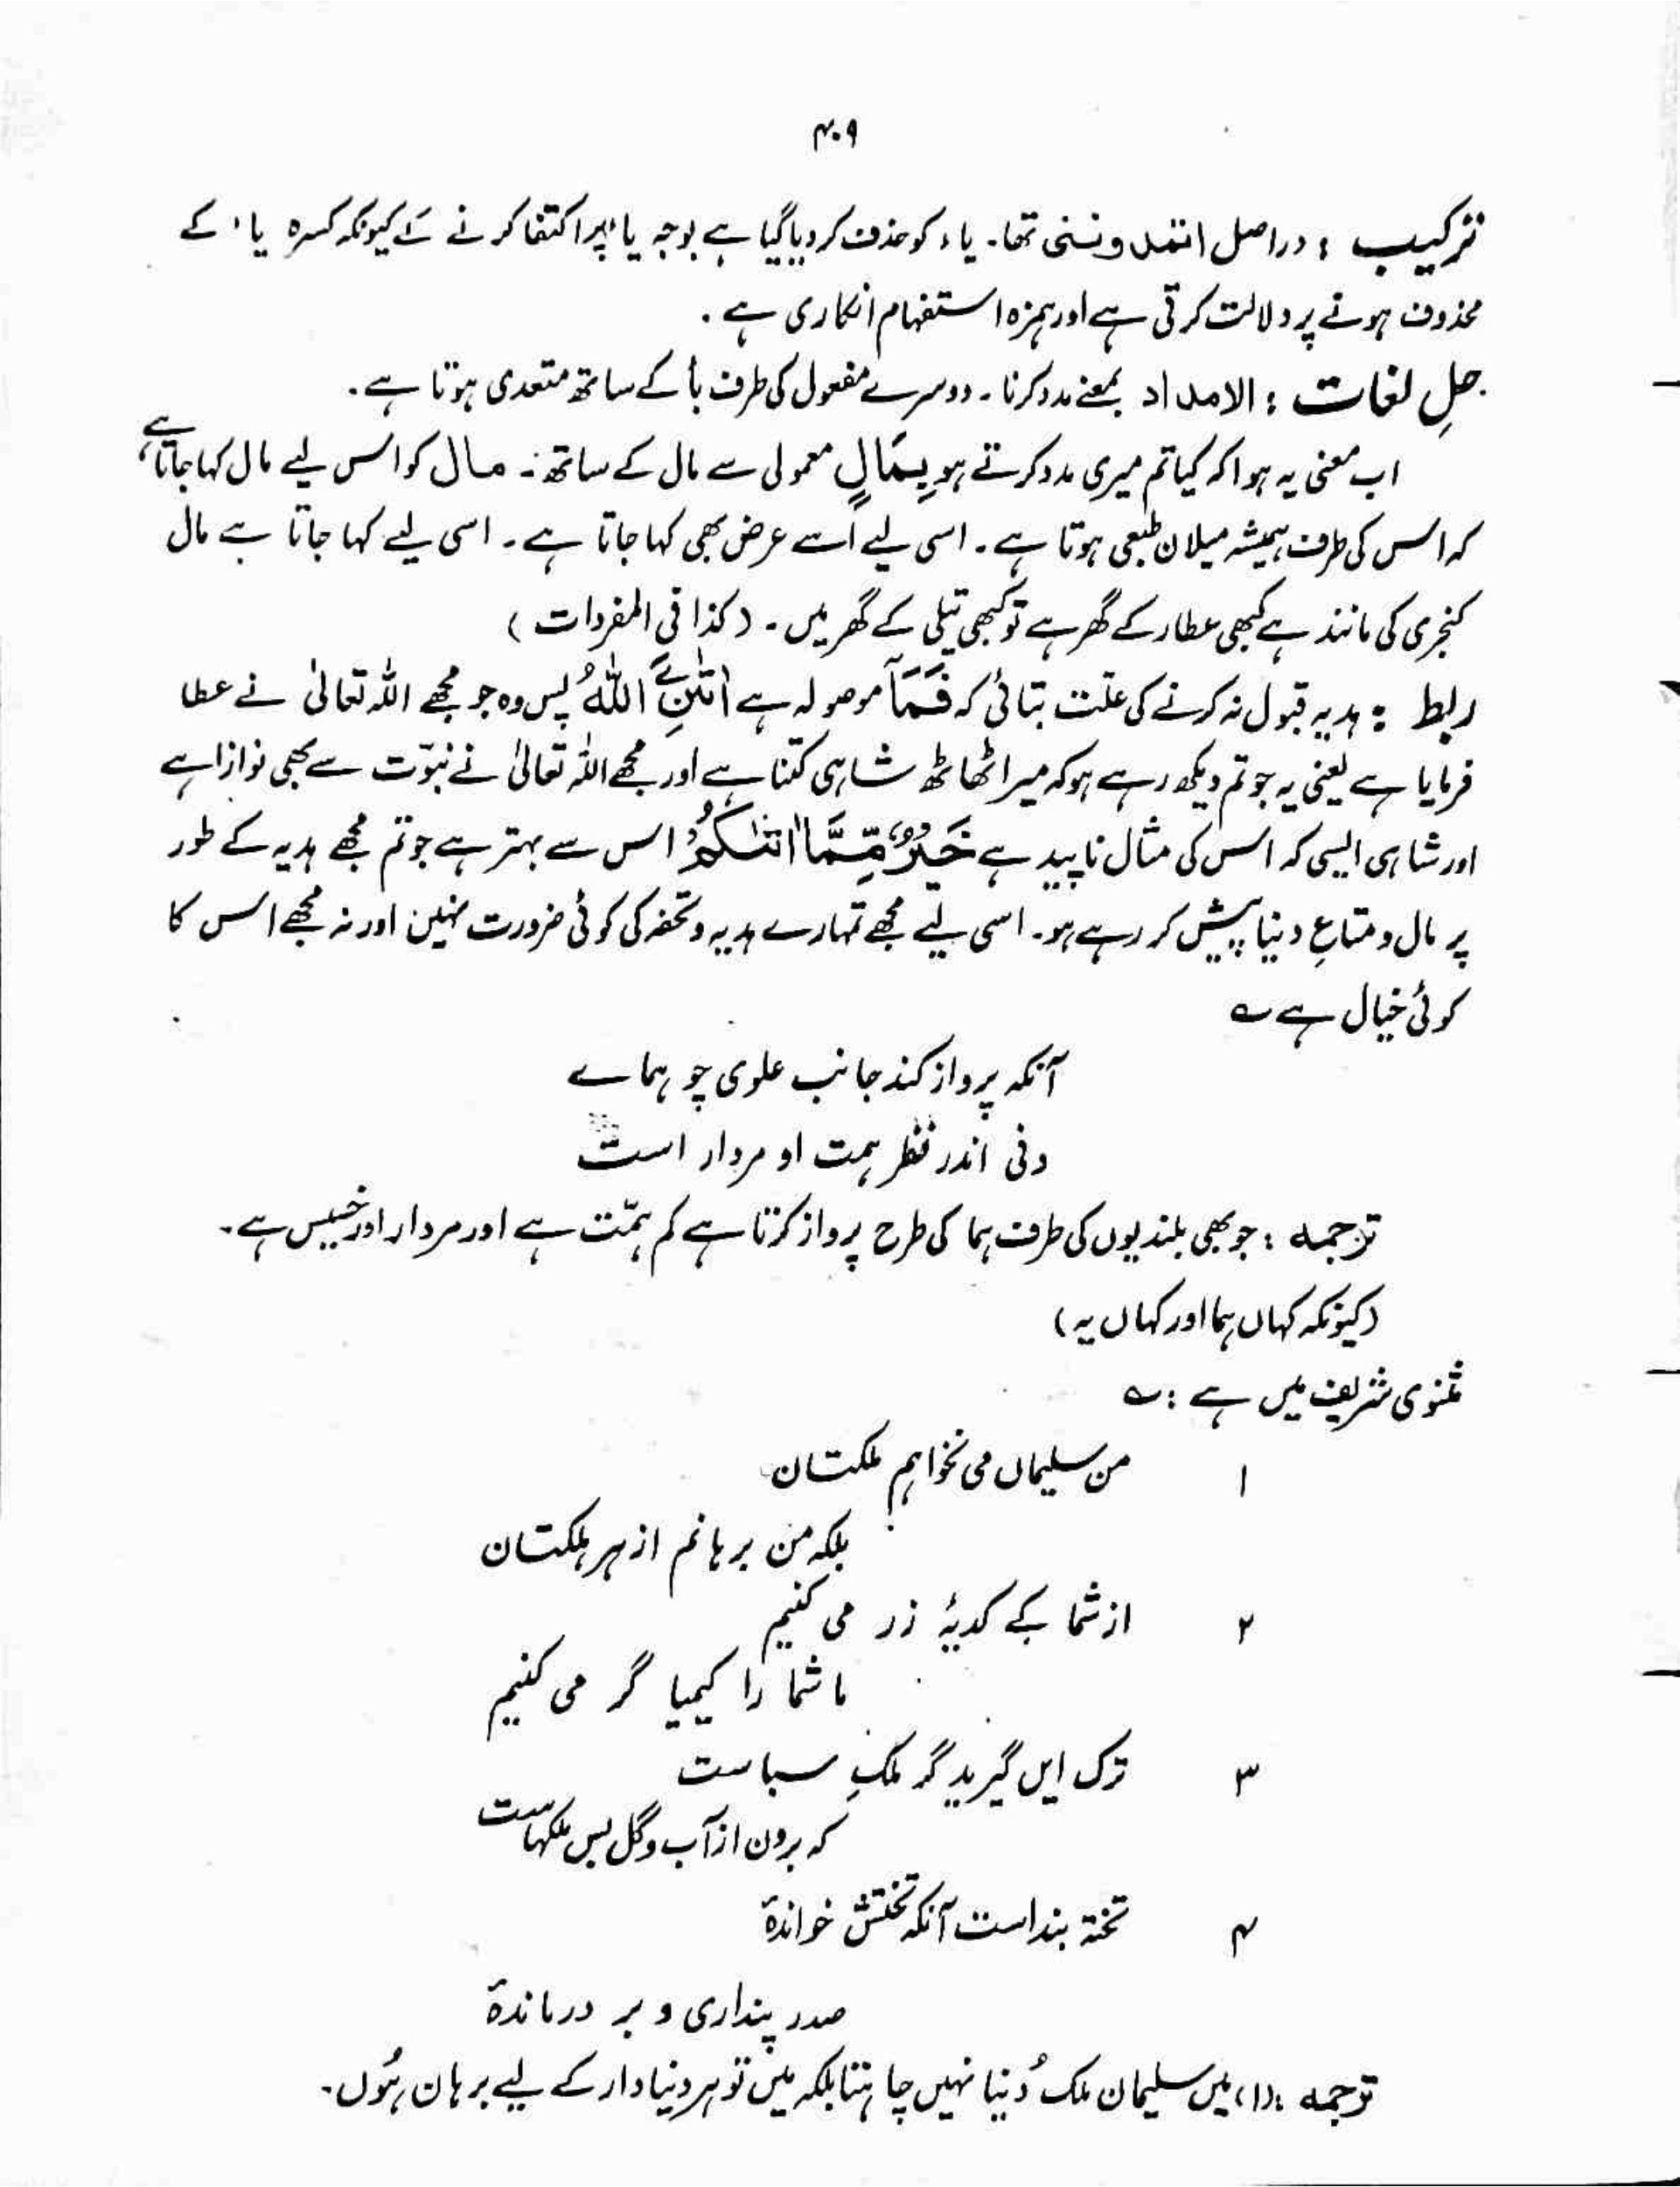 ۴۰۹
ترکیب : دراصل اتمدوننی تھا۔ یاء کو حذف کر دیا گیا ہے بوجہ یاء پر اکتفا کرنے کے کیونکہ کسرہ یاء کے
محذوف ہونے پر دلالت کرتی ہے اور ہمزہ استفہام انکاری ہے۔
حلِ لغات : الامداد بمعنے مدد کرنا۔ دوسرے مفعول کی طرف بأ کے ساتھ متعدی ہوتا ہے۔
اب معنی یہ ہوا کہ کیا تم میری مدد کرتے ہو بِمَالٍ معمولی سے مال کے ساتھ۔ مال کو اس لیے مال کہا جاتا ہے،
کہ اس کی طرف ہمیشہ میلان طبعی ہوتا ہے۔ اسی لیے اُسے عرض بھی کہا جاتا ہے۔ اسی لیے کہا جاتا ہے مال
کنجری کی مانند ہے کبھی عطار کے گھر ہے تو کبھی تیلی کے گھر میں۔ (کذا فی المفردات)
ربط : ہدیہ قبول نہ کرنے کی علّت بتائی کہ فَمَآ موصولہ ہے اٰتٰىنِۦَ اللّٰهُ پس وہ جو مجھے اللہ تعالیٰ نے عطا
فرمایا ہے یعنی یہ جو تم دیکھ رہے ہو کہ میرا ٹھاٹھ شاہی کتنا ہے اور مجھے اللہ تعالیٰ نے نبوّت سے بھی نوازا ہے
اور شاہی ایسی کہ اس کی مثال ناپید ہے خَیْرٌ مِّمَّا اٰتٰىكُمْ اس سے بہتر ہے جو تم مجھے ہدیہ کے طور
پر مال و متاعِ دنیا پیش کر رہے ہو۔ اسی لیے مجھے تمہارے ہدیہ و تحفہ کی کوئی ضرورت نہیں اور نہ مجھے اس کا
کوئی خیال ہے ؎
آنکہ پرواز کند جانب علوی چو ہماے
دنی اندر نظر ہمت او مردار است
ترجمہ : جو بھی بلندیوں کی طرف ہما کی طرح پرواز کرتا ہے کم ہمّت ہے اور مردار اور خسیس ہے۔
(کیونکہ کہاں ہما اور کہاں یہ)
مثنوی شریف میں ہے : ؎
۱ من سلیماں می نخواہم ملکتان
بلکہ من برہانم از ہر ہلکتان
۲ از شما کے کدیۂ زر می کنیم
ما شما را کیمیا گر می کنیم
۳ ترک ایں گیرید گر ملکِ سباست
کہ برون از آب و گل بس ملکہاست
۴ تختہ بنداست آنکہ تختش خواندۂ
صدر پنداری و بر درماندۂ
ترجمہ : (۱) میں سلیمان ملک دُنیا نہیں چاہتا بلکہ میں تو ہر دنیادار کے لیے برہان ہُوں۔